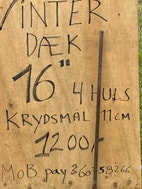 VINTER
DÆK
16" 4 HULS
KRYDSMÅL 11 CM
1200,-
MOB. pay 360 58266